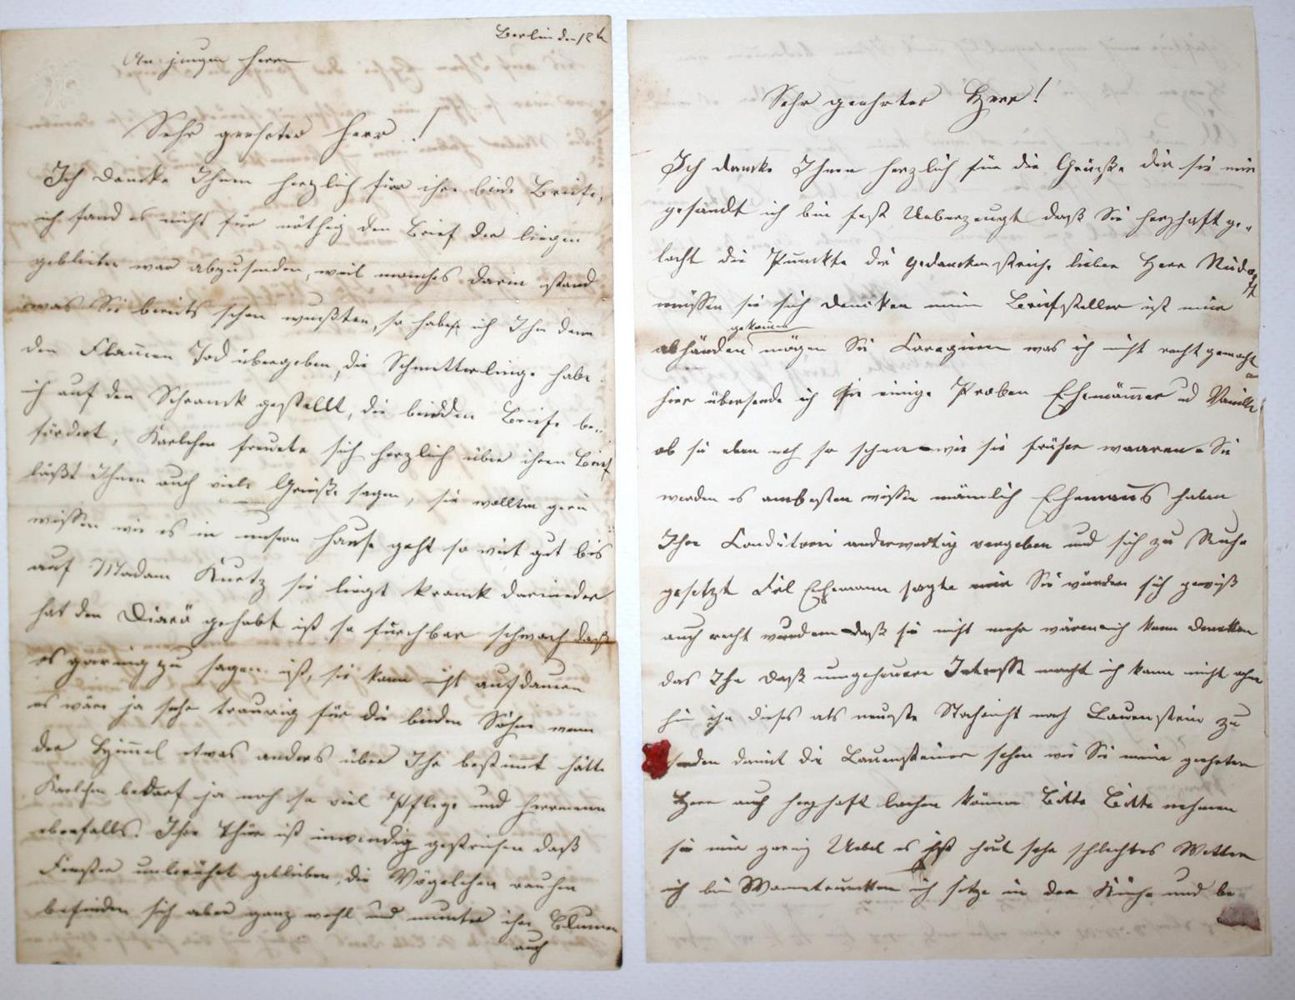 Berlin den 12t
An jungen Herrn
Sehr geehrter Herr!
Ich dancke Ihnen herzlich für ihre beide Briefe,
ich fand es nicht für nöthig den Brief der liegen
geblieben war abzusenden, weil manches darin stand
was Sie bereits schon wußten, so habe ich Ihn dem
den Flamen Tod übergeben, die Schmetterlinge habe
ich auf den Schranck gestellt, die beiden Briefe be-
fördert, Karlchen freute sich herzlich über ihren Brief
läßt Ihnen auch viele Grüße sagen, sie wollten gern
wissen wie es in unsern Hause geht so weit gut bis
auf Madam Kurtz sie liegt kranck darnieder
hat den Diarö gehabt ist so furchbar schwach daß
es garnig zu sagen ist, sie kann nicht ausdauern
es wäre ja sehr traurig für die beiden Söhne wenn
der Himmel etwas anders über Ihr bestimt hätte
Karlchen bedarf ja noch so viel Pflege und Herrmann
ebenfalls. Ihre Thür ist inwendig gestrichen daß
Fenster unberührt geblieben, die Vögelchen
befinden sich aber ganz wohl und munter ihre Blumen
auch
Sehr geehrter Herr!
Ich dancke Ihnen herzlich für die Grüße die sie mir
gesandt ich bin fest Ueberzeugt daß Sie herzhaft ge-
lacht die Punckte die Gedanckenstriche lieber Herr
müssen sie sich dencken mein Briefsteller ist mir
abhänden gekomen mögen Sie Coregieren was ich nicht recht gemacht
hier übersende ich Sie einige Proben Ehemänner und Vanille
ob sie eben noch so schön wie sie früher waaren. Sie
werden es ambesten wissen nämlich Ehemanns haben
Ihre Conditorei anderweitig vergeben und sich zu Ruhe
gesetzt Frl Ehemann sagte mir Sie würden sich gewiß
auch recht wundern daß sie nicht mehr wären ich kann dencken
das Ihr daß ungeheuere Intresse macht ich kann nicht ohne
hin ihn dieses als neuste Nachricht nach Lauenstein zu
senden damit die Lauensteiner schon wie Sie mein geehrter
Herr auch herzhaft lachen könen Bitte Bitte nehmen
sie mir garnig Uebel es ist heut sehr schlechtes Wetter
ich bin ich sitze in der Küche und be